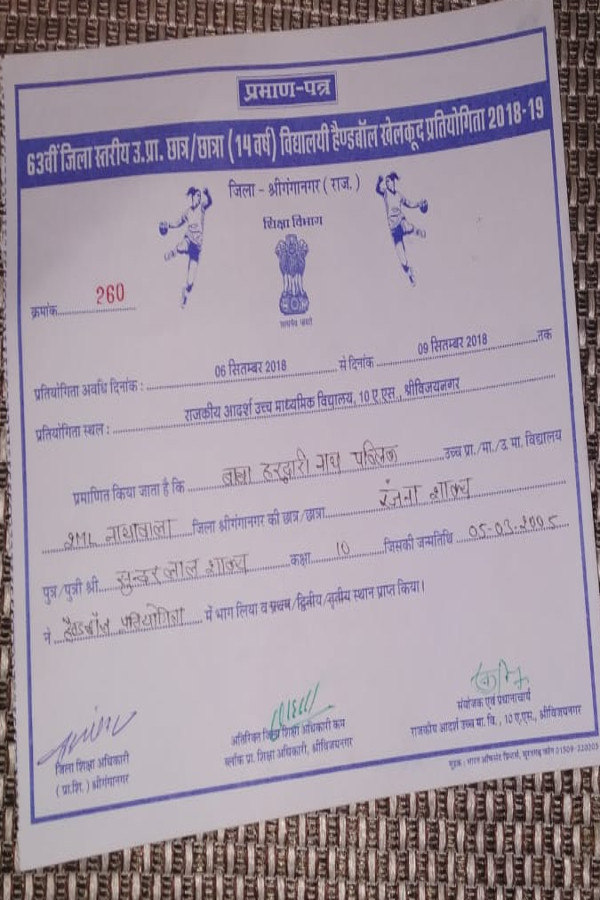 प्रमाण-पत्र
63वीं जिला स्तरीय उ.प्रा. छात्र/छात्रा (14 वर्ष) विद्यालयी हैण्डबॉल खेलकूद प्रतियोगिता 2018-19
जिला - श्रीगंगानगर ( राज. )
शिक्षा विभाग
सत्यमेव जयते
क्रमांक 260
प्रतियोगिता अवधि दिनांक : 06 सितम्बर 2018 से दिनांक 09 सितम्बर 2018 तक
प्रतियोगिता स्थल : राजकीय आदर्श उच्च माध्यमिक विद्यालय, 10 ए.एस., श्रीविजयनगर
प्रमाणित किया जाता है कि बाबा हरद्वारी नाथ पब्लिक उच्च प्रा./मा./उ मा. विद्यालय
2ML नाथावाला जिला श्रीगंगानगर की छात्र/छात्रा रंजना शाक्य
पुत्र/पुत्री श्री सुन्दर लाल शाक्य कक्षा 10 जिसकी जन्मतिथि 05-03-2005
ने हैण्डबॉल प्रतियोगिता में भाग लिया व प्रथम/द्वितीय/तृतीय स्थान प्राप्त किया।
जिला शिक्षा अधिकारी
( प्रा.शि.) श्रीगंगानगर
अतिरिक्त शिक्षा अधिकारी कम
ब्लॉक प्रा. शिक्षा अधिकारी, श्रीविजयनगर
संयोजक एवं प्रधानाचार्य
राजकीय आदर्श उच्च मा. वि., 10 ए.एस., श्रीविजयनगर
मुद्रक : भारत ऑफसेट प्रिन्टर्स, सूरतगढ़ फोन 01509-220203